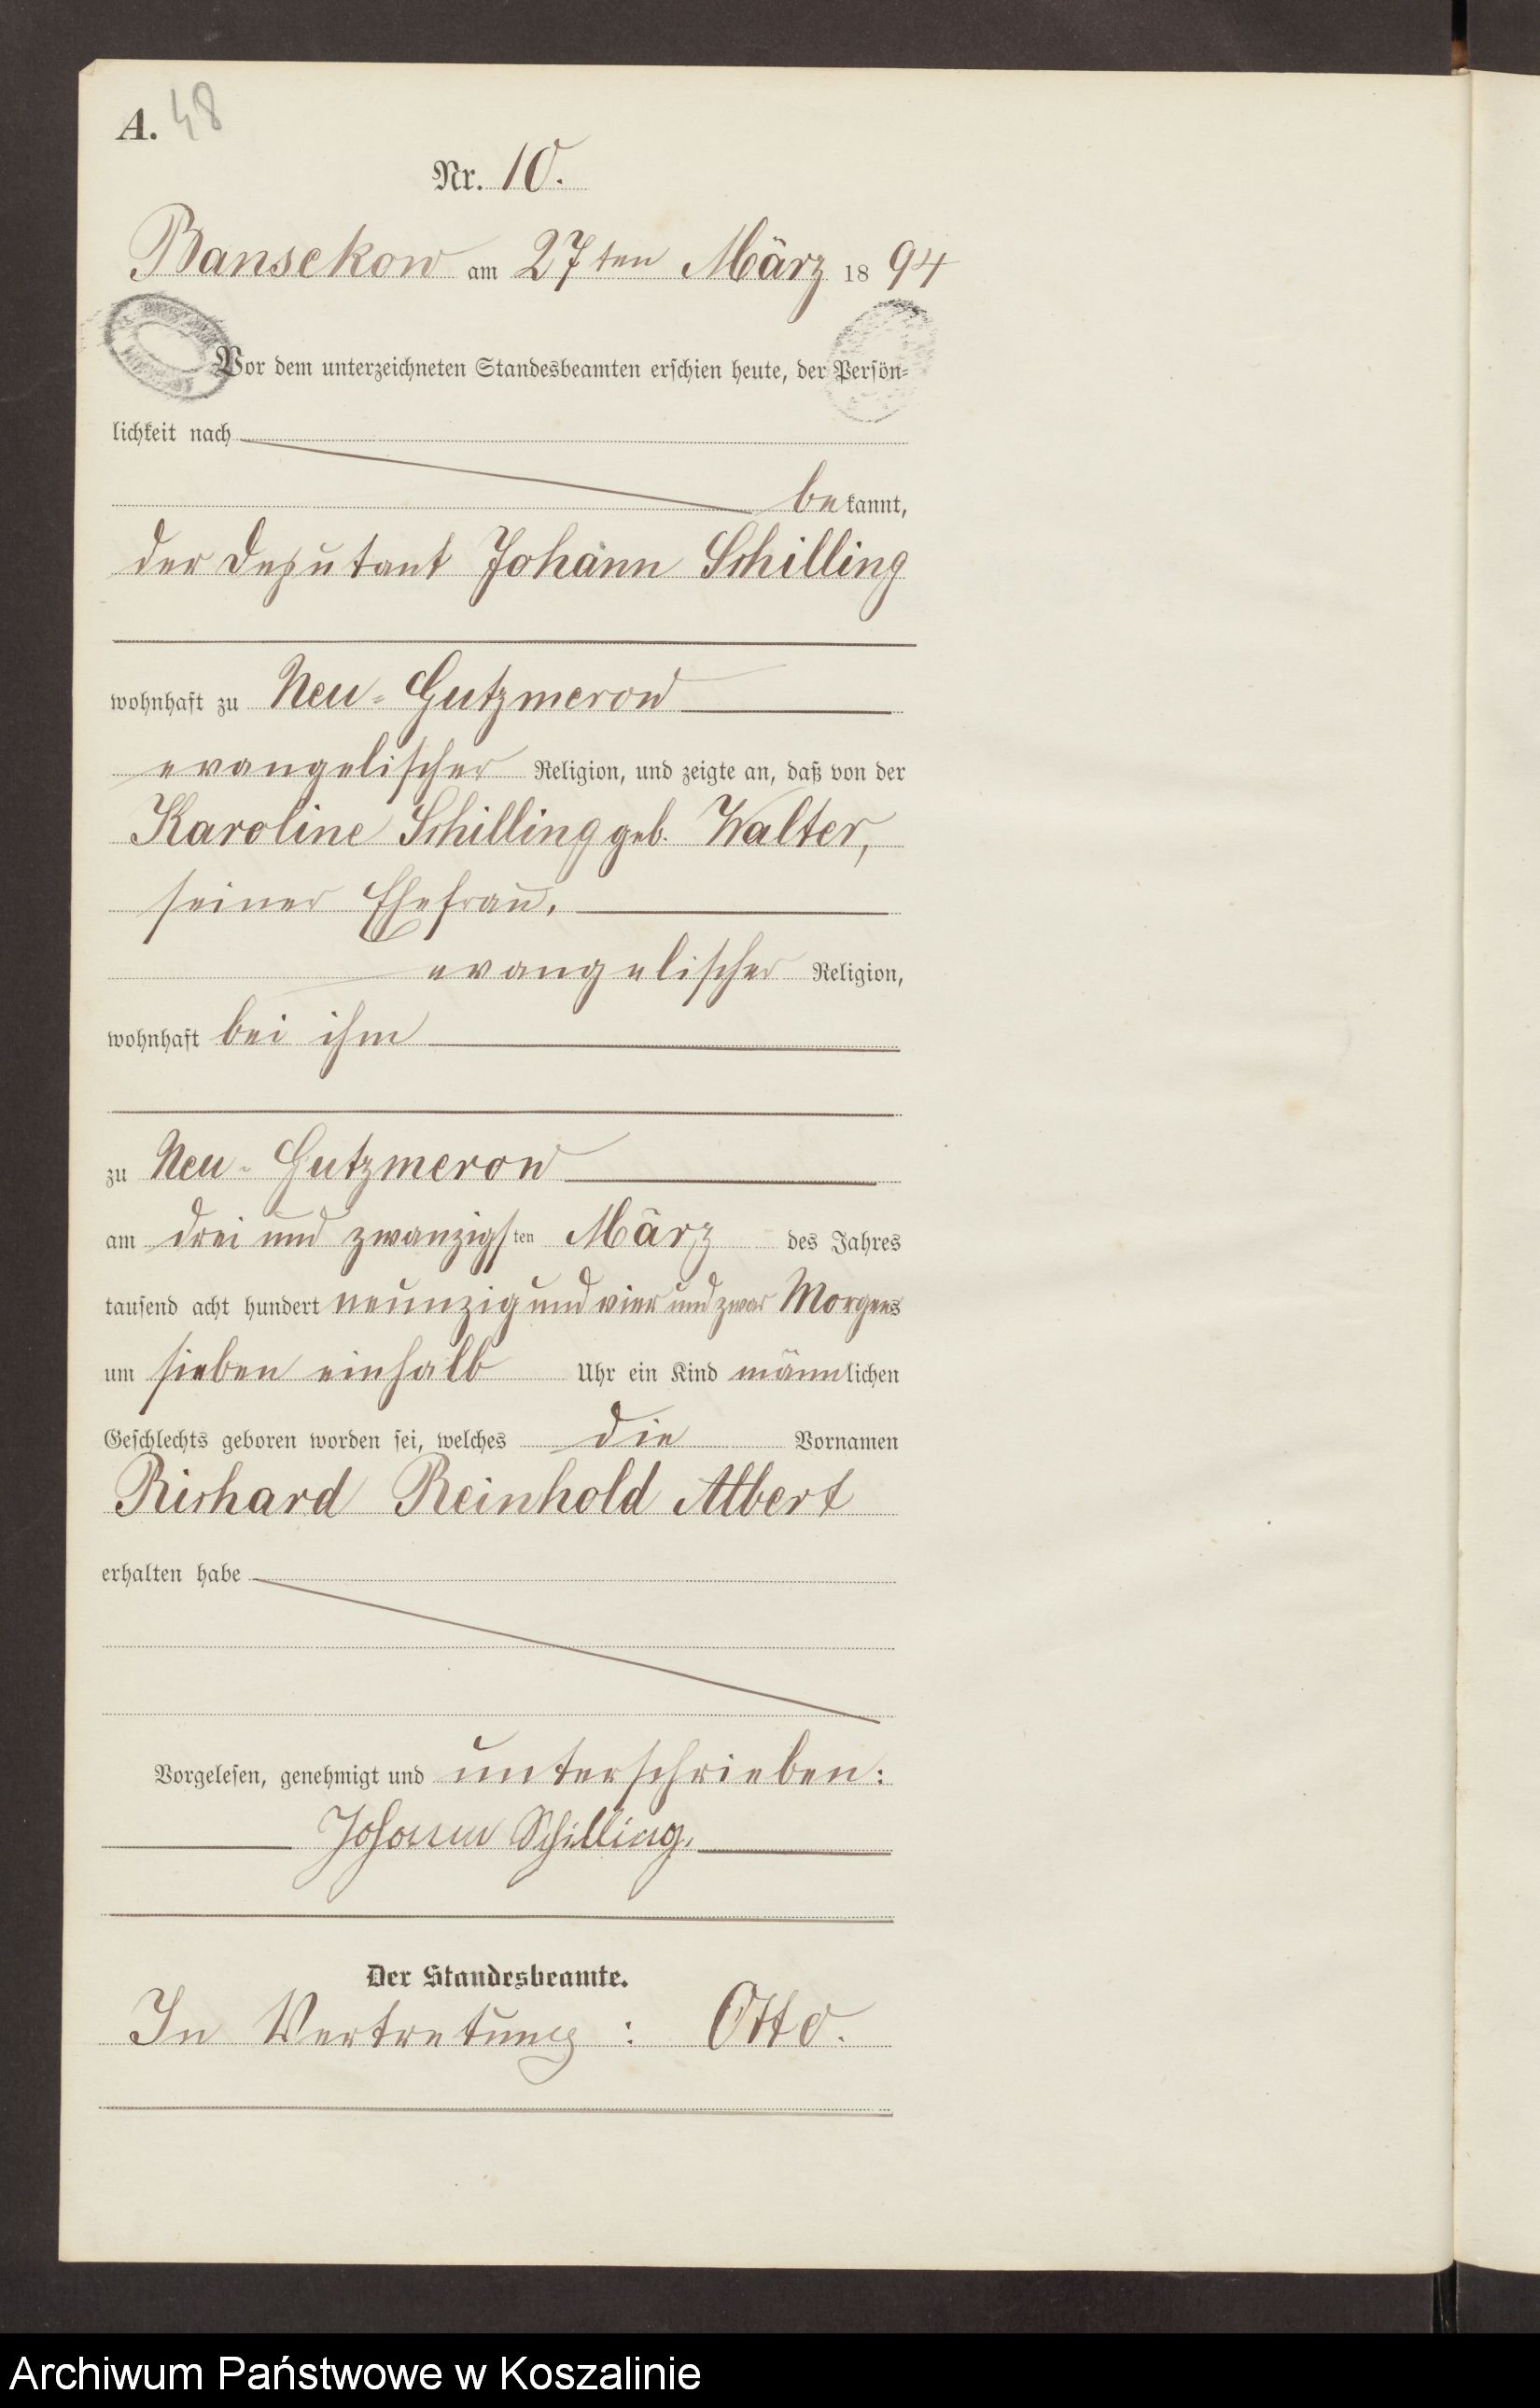 A. 48
Nr. 10.
Bansekow am 27ten März 1894
Vor dem unterzeichneten Standesbeamten erschien heute, der Persön-
lichkeit nach
bekannt,
der Deputant Johann Schilling
wohnhaft zu Neu-Gutzmerow
evangelischer Religion, und zeigte an, daß von der
Karoline Schilling geb. Walter,
seiner Ehefrau,
evangelischer Religion,
wohnhaft bei ihm
zu Neu-Gutzmerow
am drei und zwanzigsten März des Jahres
tausend acht hundert neunzig und vier und zwar Morgens
um sieben einhalb Uhr ein Kind männlichen
Geschlechts geboren worden sei, welches die Vornamen
Richard Reinhold Albert
erhalten habe
Vorgelesen, genehmigt und unterschrieben:
Johann Schilling.
Der Standesbeamte.
In Vertretung: Otto.
Archiwum Państwowe w Koszalinie